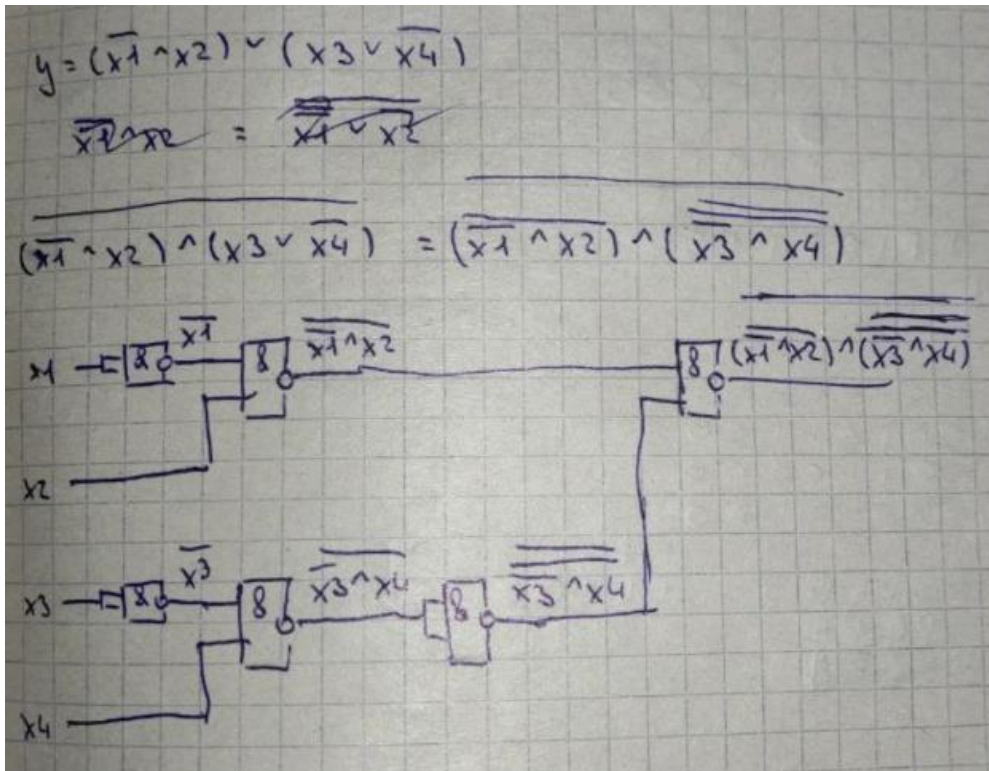 y = (x̅1̅ ^ x2) ˅ (x3 ˅ x̅4̅)
x̅1̅ ^ x2 = x̅1̅ ˅ x̅2̅
(x̅1̅ ^ x2) ^ (x3 ˅ x̅4̅) = (x̅1̅ ^ x2) ^ (x̅3̅ ^ x4)
x1 & x̅1̅ & x̅1̅ ^ x2 & (x̅1̅ ^ x2) ^ (x̅3̅ ^ x4)
x2
x3 & x̅3̅ & x̅3̅ ^ x4 & x̅3̅ ^ x4
x4